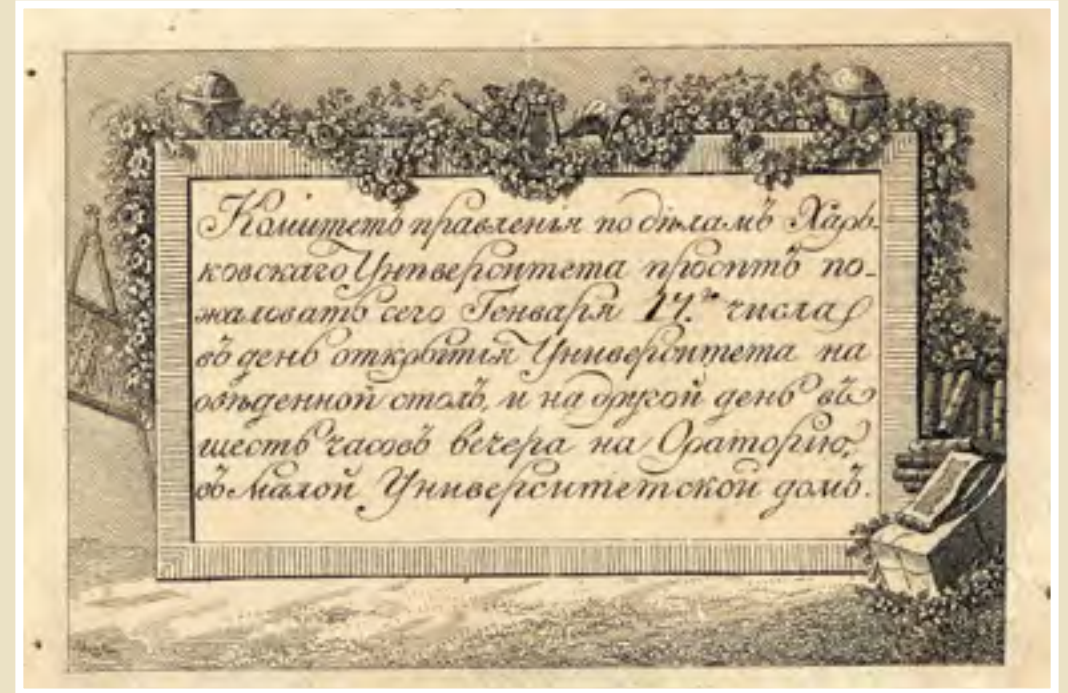 Комитетъ правленія по дѣламъ Харь-
ковскаго Университета проситъ по-
жаловать сего Генваря 17.го числа
въ день открытія Университета на
обѣденной столъ, и на другой день въ
шесть часовъ вечера на Ораторію,
въ малой Университетской домъ.